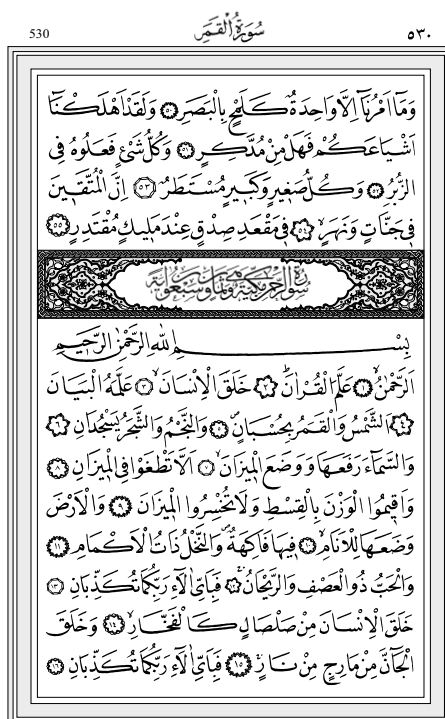 530 سُورَةُ الْقَمَرِ ٥٣٠
وَمَٓا اَمْرُنَٓا اِلَّا وَاحِدَةٌ كَلَمْحٍ بِالْبَصَرِ ﴿٥٠﴾ وَلَقَدْ اَهْلَكْنَٓا
اَشْيَاعَكُمْ فَهَلْ مِنْ مُدَّكِرٍ ﴿٥١﴾ وَكُلُّ شَيْءٍ فَعَلُوهُ فِي
الزُّبُرِ ﴿٥٢﴾ وَكُلُّ صَغِيرٍ وَكَبِيرٍ مُسْتَطَرٌ ﴿٥٣﴾ اِنَّ الْمُتَّقِينَ
فِي جَنَّاتٍ وَنَهَرٍ ﴿٥٤﴾ فِي مَقْعَدِ صِدْقٍ عِنْدَ مَلِيكٍ مُقْتَدِرٍ ﴿٥٥﴾
سُورَةُ الرَّحْمٰنِ مَكِّيَّةٌ وَهِيَ ثَمَانٍ وَسَبْعُونَ اٰيَةً
بِسْمِ اللّٰهِ الرَّحْمٰنِ الرَّحِيمِ
اَلرَّحْمٰنُ ﴿١﴾ عَلَّمَ الْقُرْاٰنَ ﴿٢﴾ خَلَقَ الْاِنْسَانَ ﴿٣﴾ عَلَّمَهُ الْبَيَانَ
﴿٤﴾ اَلشَّمْسُ وَالْقَمَرُ بِحُسْبَانٍ ﴿٥﴾ وَالنَّجْمُ وَالشَّجَرُ يَسْجُدَانِ ﴿٦﴾
وَالسَّمَٓاءَ رَفَعَهَا وَوَضَعَ الْمِيزَانَ ﴿٧﴾ اَلَّا تَطْغَوْا فِي الْمِيزَانِ ﴿٨﴾
وَاَقِيمُوا الْوَزْنَ بِالْقِسْطِ وَلَا تُخْسِرُوا الْمِيزَانَ ﴿٩﴾ وَالْاَرْضَ
وَضَعَهَا لِلْاَنَامِ ﴿١٠﴾ فِيهَا فَاكِهَةٌ وَالنَّخْلُ ذَاتُ الْاَكْمَامِ ﴿١١﴾
وَالْحَبُّ ذُو الْعَصْفِ وَالرَّيْحَانُ ﴿١٢﴾ فَبِاَيِّ اٰلَٓاءِ رَبِّكُمَا تُكَذِّبَانِ ﴿١٣﴾
خَلَقَ الْاِنْسَانَ مِنْ صَلْصَالٍ كَالْفَخَّارِ ﴿١٤﴾ وَخَلَقَ
الْجَٓانَّ مِنْ مَارِجٍ مِنْ نَارٍ ﴿١٥﴾ فَبِاَيِّ اٰلَٓاءِ رَبِّكُمَا تُكَذِّبَانِ ﴿١٦﴾